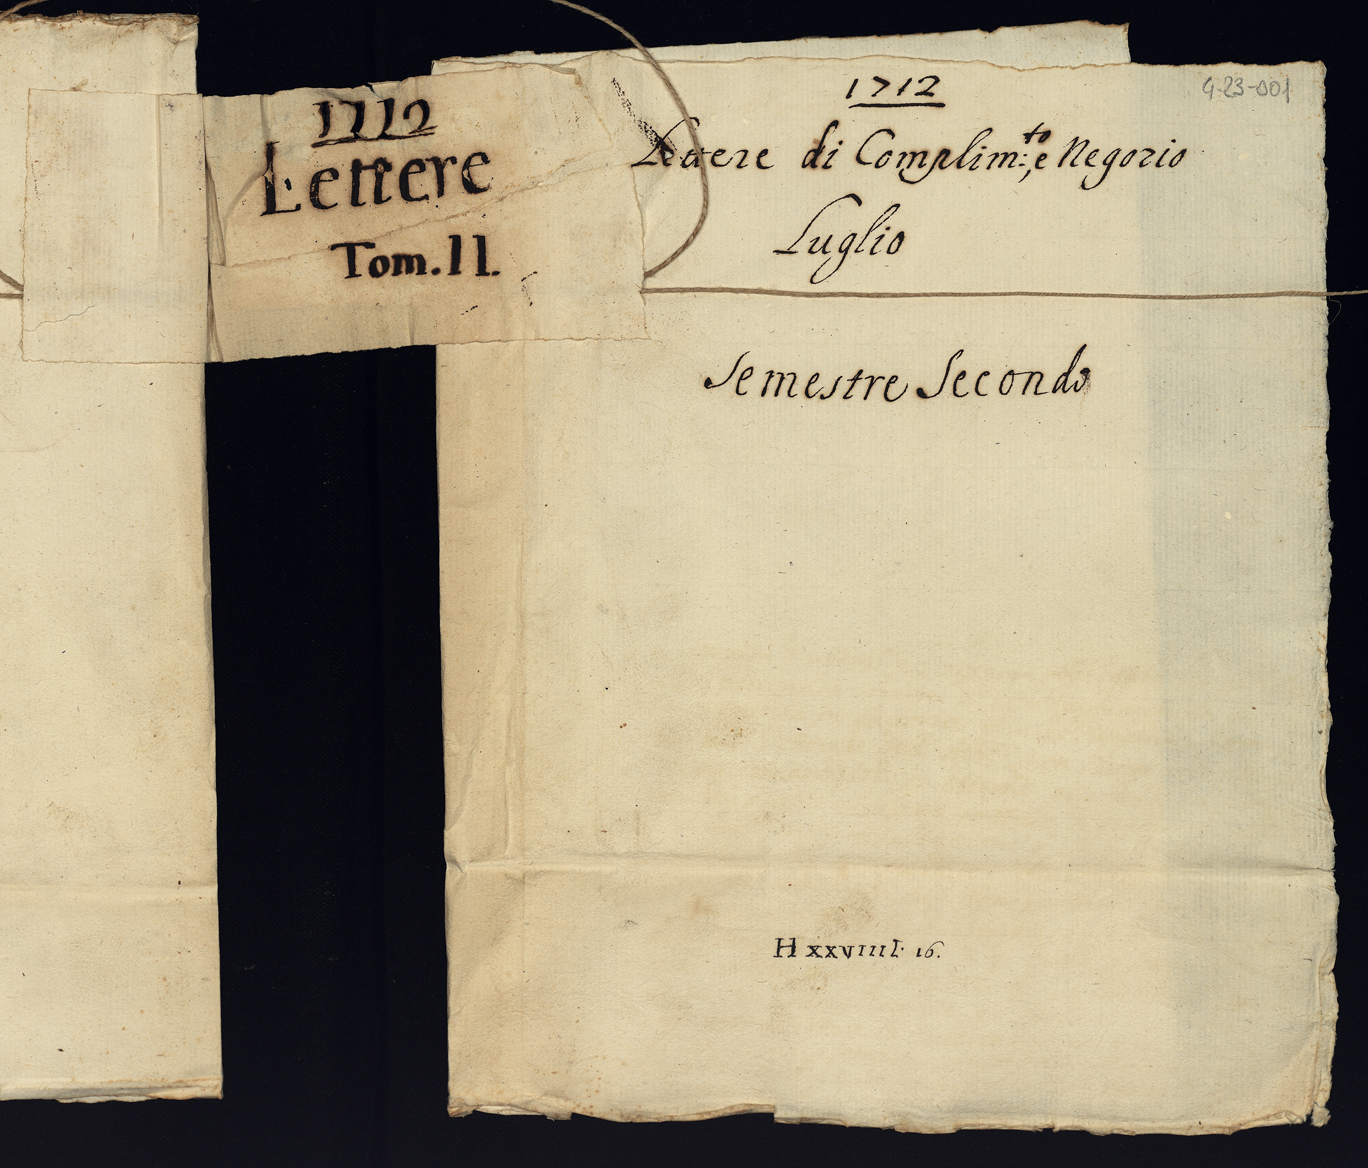 1712
Lettere
Tom. II.
G-23-001
1712
Lettere di Complim:to, e Negozio
Luglio
Semestre Secondo
H XXVIIII. 16.